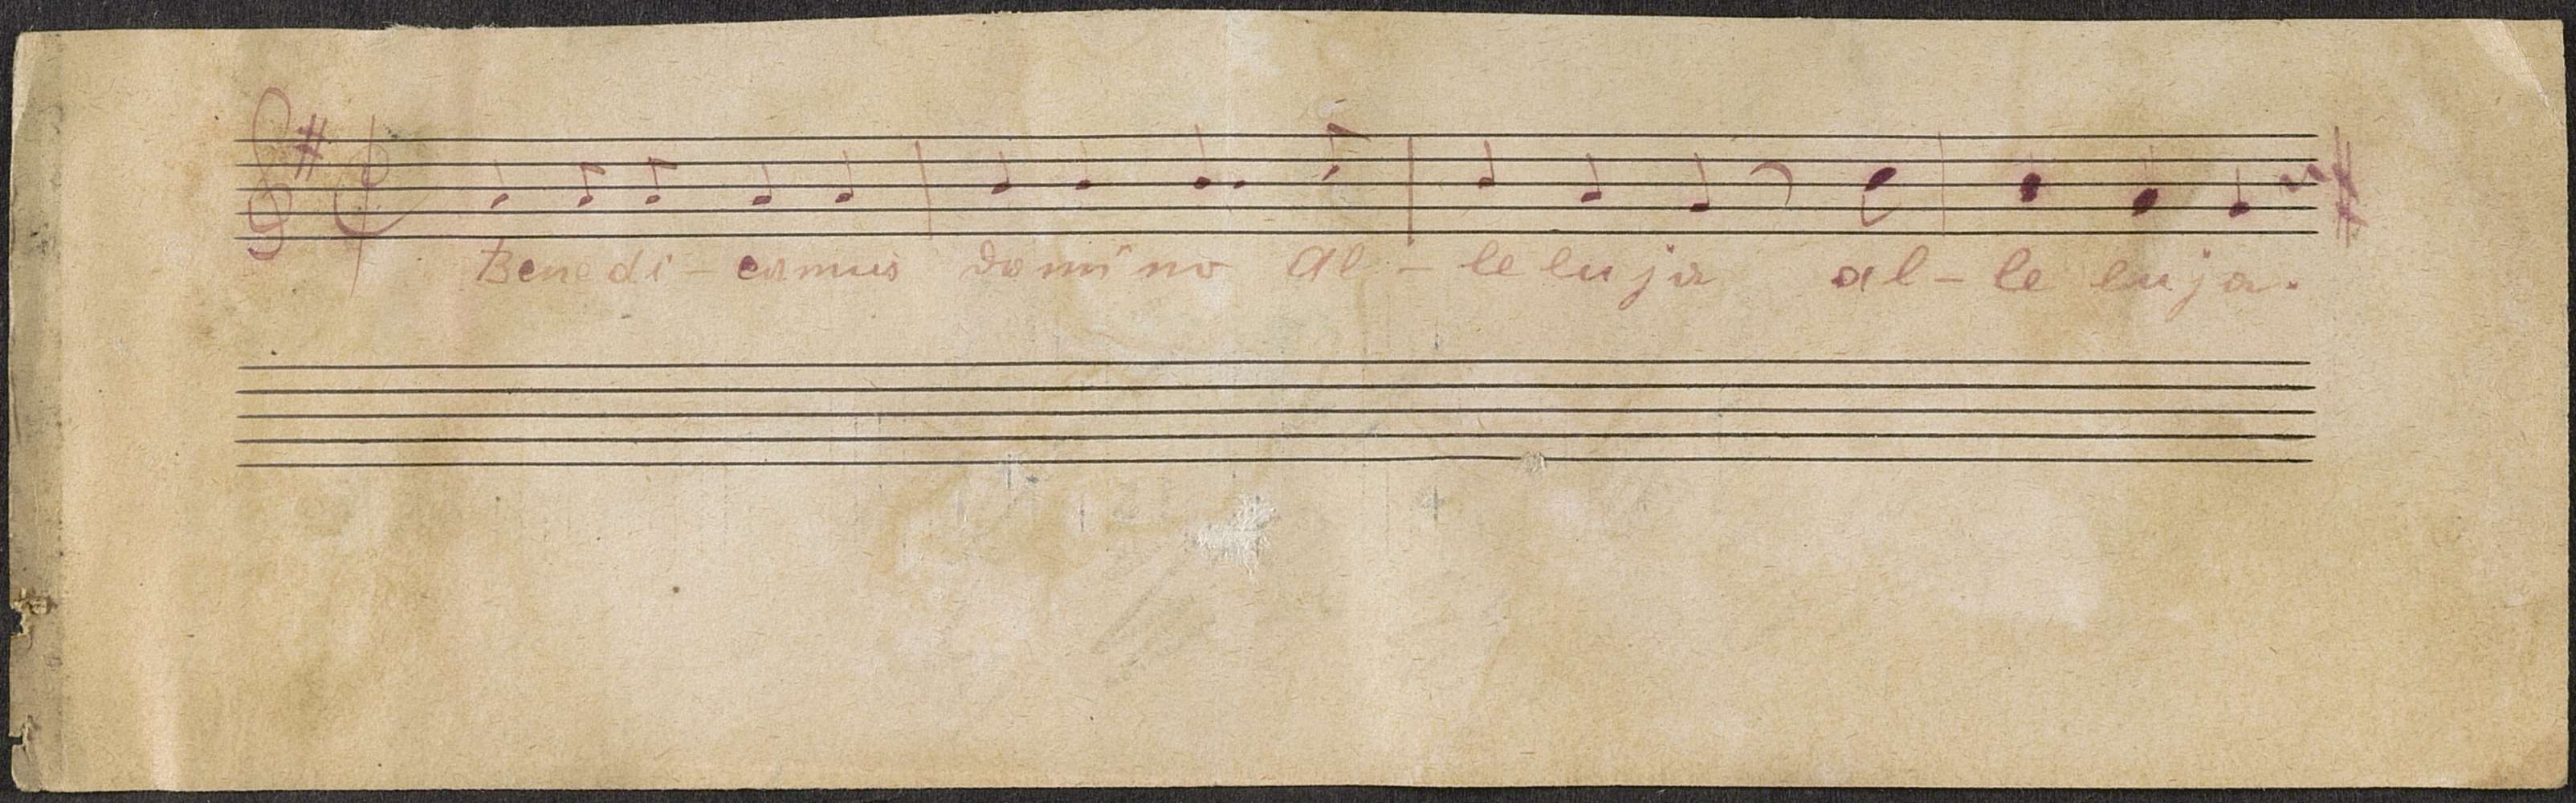 Benedi - camus domino Al - leluja al - le luja.